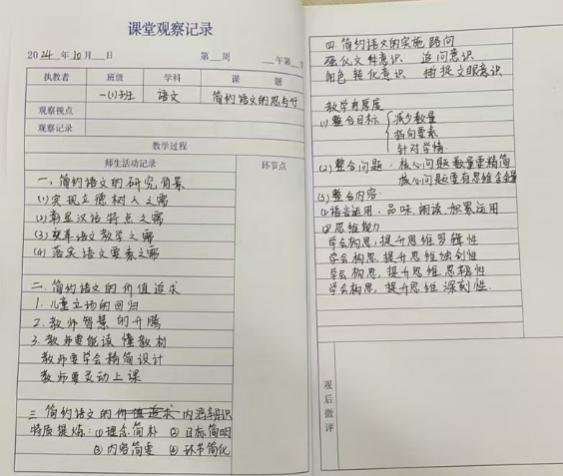 课堂观察记录
2024年10月__日 第__周 __午第
执教者 班级 学科 课题
一(1)班 语文 简约语文的思与行
观察视点
观察记录
教学过程
师生活动记录 环节点
一、简约语文的研究背景
(1)实现立德树人之需
(2)彰显汉语特点之需
(3)变革语文教学之需
(4)落实语文要素之需
二、简约语文的价值追求
1.儿童立场的回归
2.教师智慧的开腾
3.教师要能读懂教材
教师要学会精简设计
教师要灵动上课
三、简约语文的价值追求内涵与识
特质提炼:①理念简朴 ②目标简明
③内容简要 ④环节简化
四.简约语文的实施路向
强化文体意识 追问意识
角色转化意识 捕捉文眼意识
教学有厚度
(1)整合目标 减少数量
指向要素
针对学情
(2)整合问题:核心问题数量要精简
核心问题要有思维含量
(3)整合内容:
①语言运用、品味、朗读、积累运用
②思维能力
学会构思,提升思维逻辑性
学会构思,提升思维独创性
学会构思,提升思维思辨性
学会构思,提升思维深刻性.
观后微评